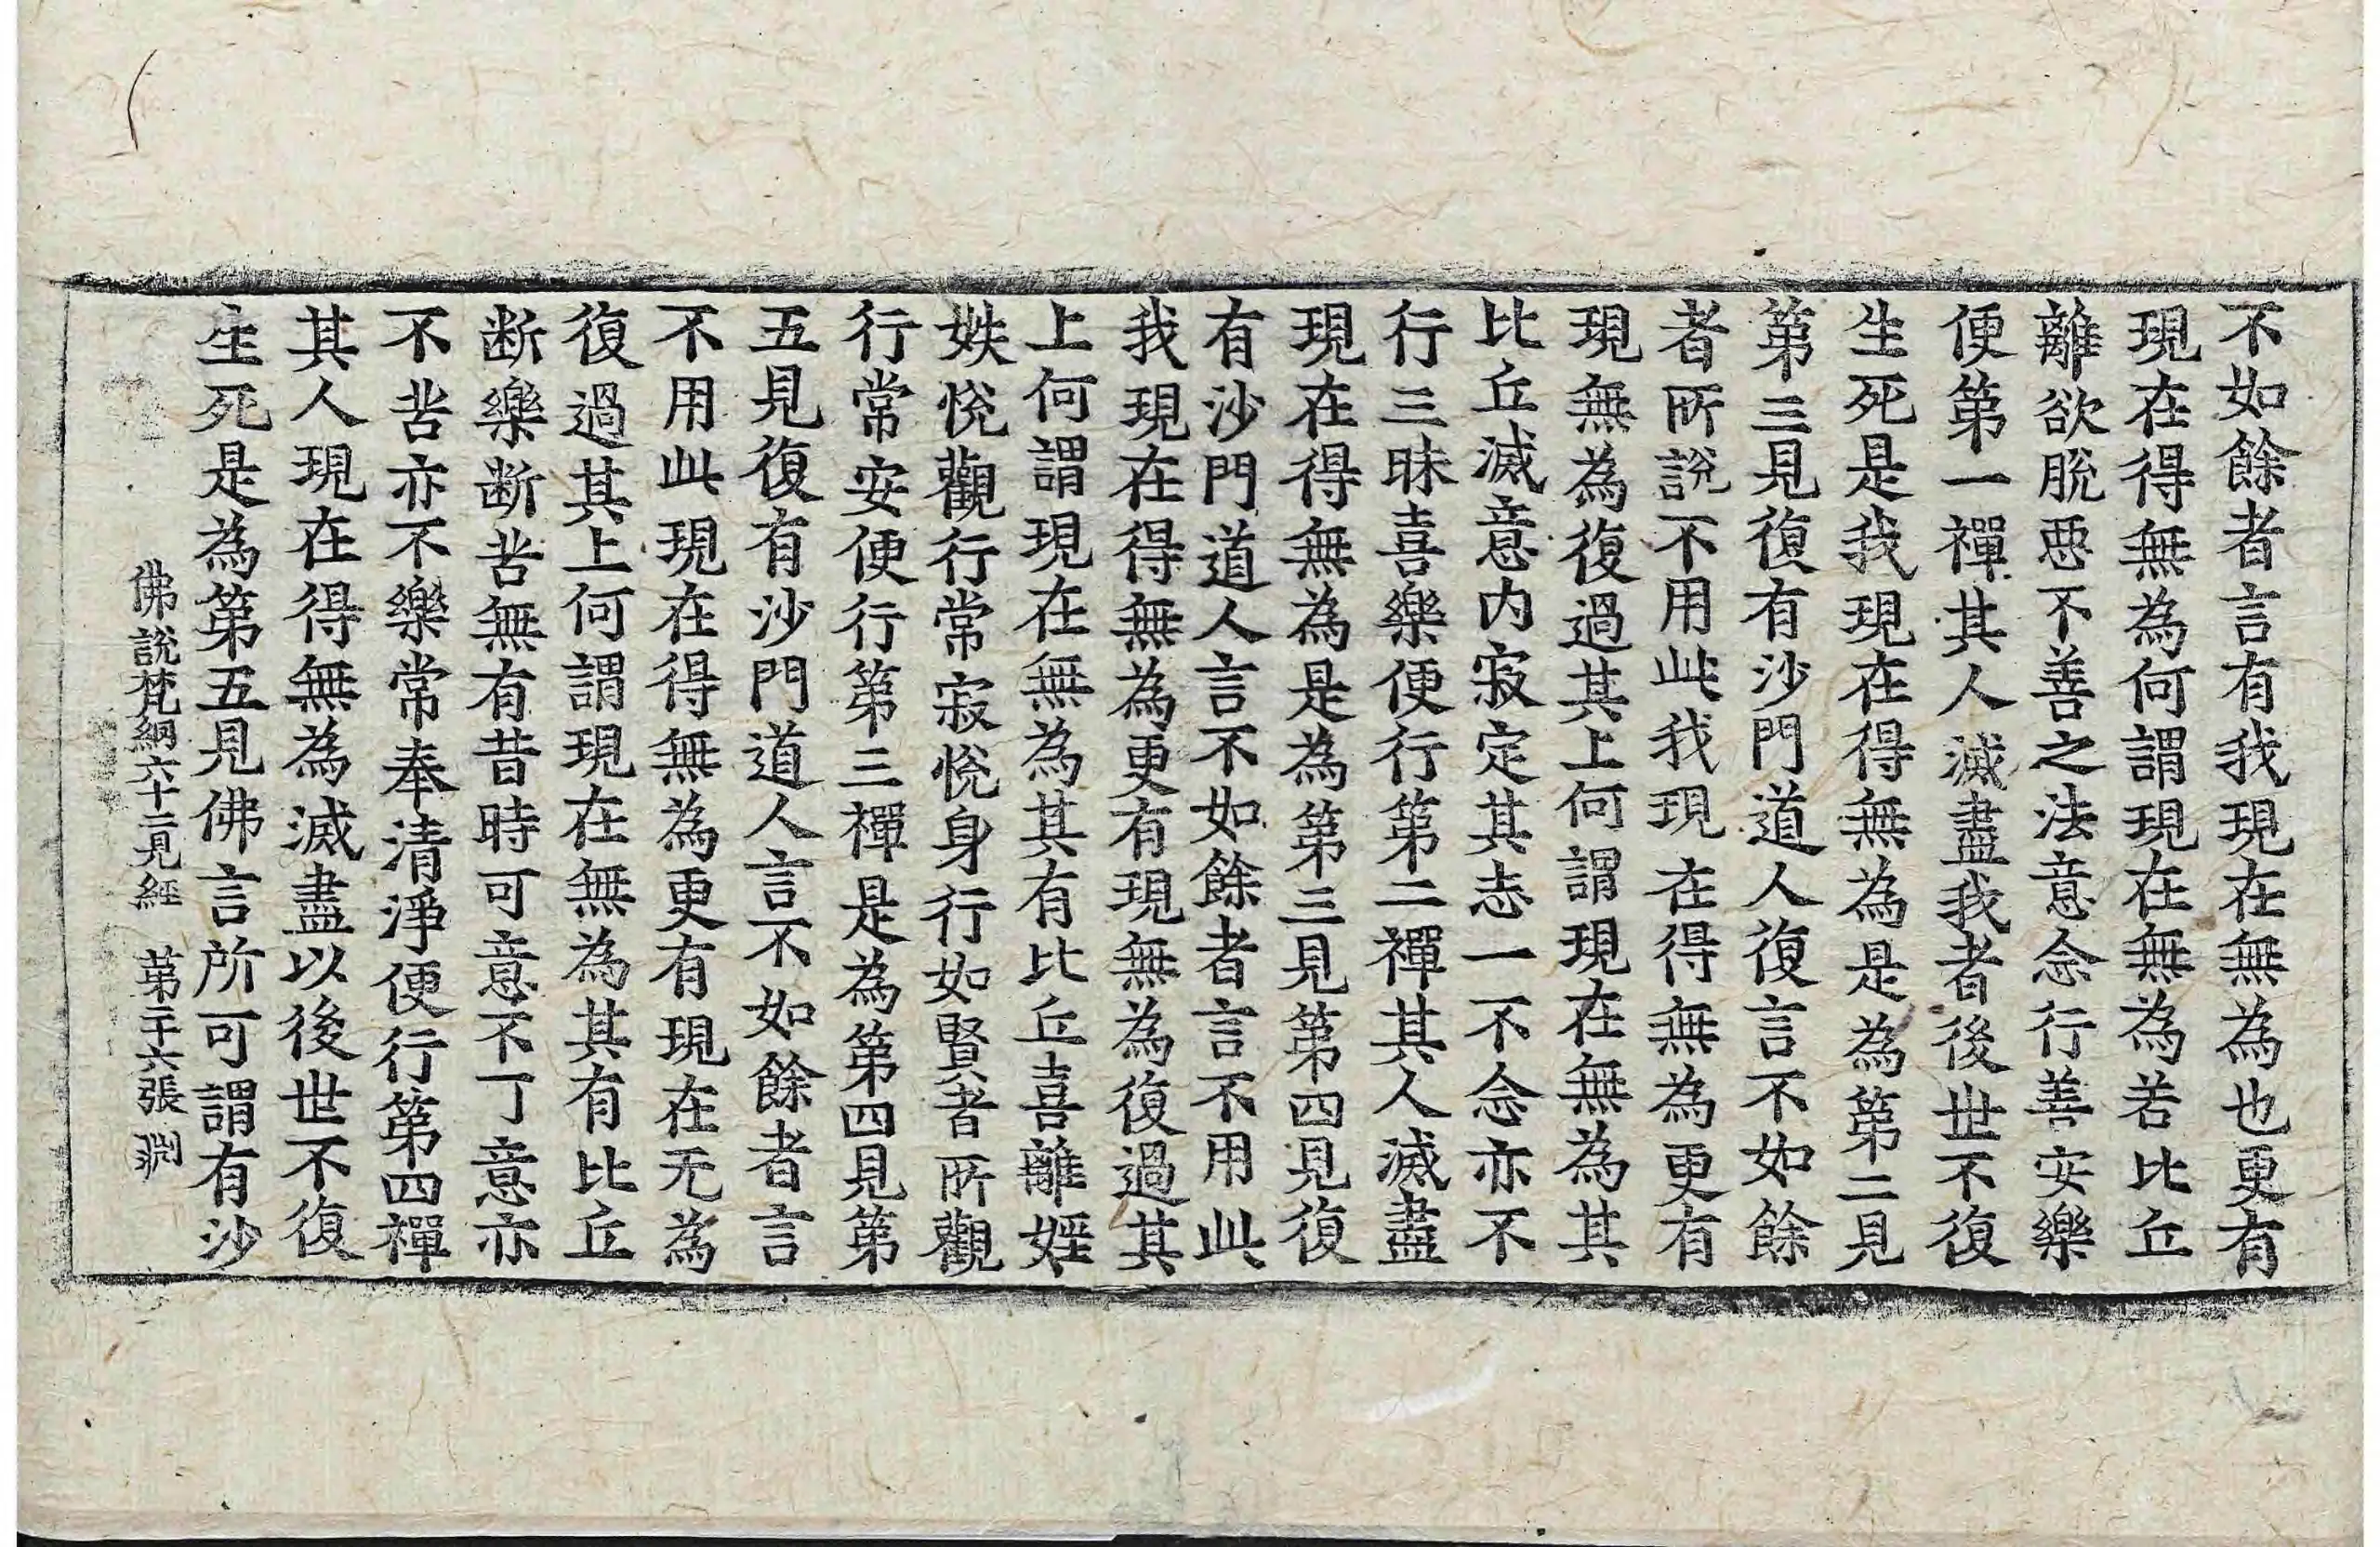 不如餘者言有我現在無為也更有
現在得無為何謂現在無為若比丘
離欲脫惡不善之法意念行善安樂
便第一禪其人滅盡我者後世不復
生死是我現在得無為是為第二見
第三見復有沙門道人復言不如餘
者所說不用此我現在得無為更有
現無為復過其上何謂現在無為其
比丘滅意內寂定其志一不念亦不
行三昧喜樂便行第二禪其人滅盡
現在得無為是為第三見第四見復
有沙門道人言不如餘者言不用此
我現在得無為更有現無為復過其
上何謂現在無為其有比丘喜離婬
妷悅觀行常寂悅身行如賢者所觀
行常安便行第三禪是為第四見第
五見復有沙門道人言不如餘者言
不用此現在得無為更有現在无為
復過其上何謂現在無為其有比丘
断樂断苦無有昔時可意不丁意亦
不苦亦不樂常奉清淨便行第四禪
其人現在得無為滅盡以後世不復
生死是為第五見佛言所可謂有沙
佛說梵網六十二見經 第二十六張 渕